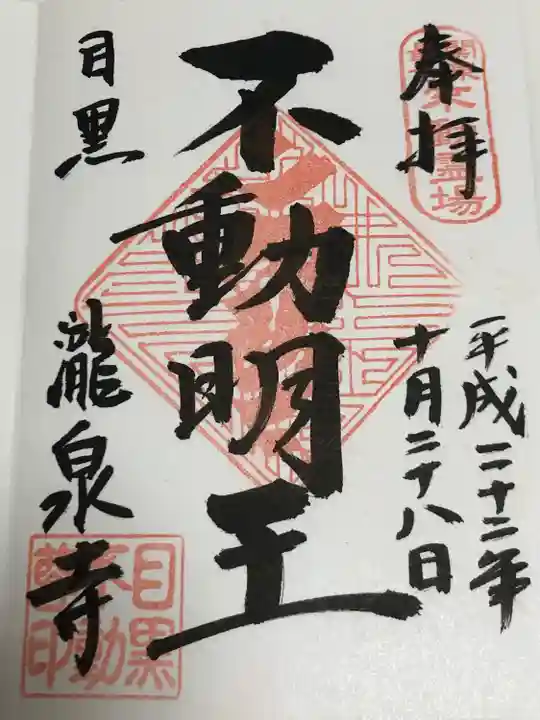 奉拝
平成二十二年
十月二十八日
不動明王
目黒
瀧泉寺
霊場
目黒
不動
尊印